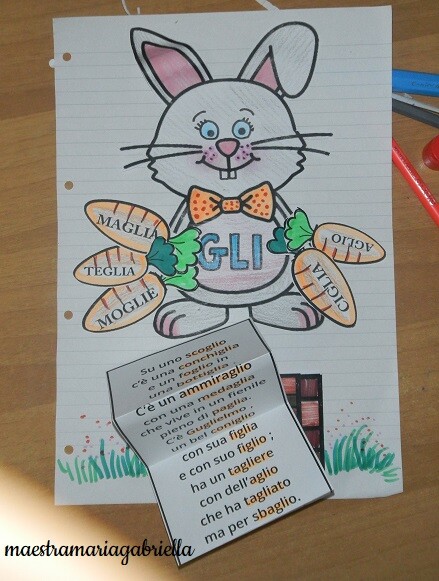 MAGLIA
TEGLIA
MOGLIE
GLI
AGLIO
CIGLIA
Su uno scoglio
c'è una conchiglia
e un foglio in
una bottiglia.
C'è un ammiraglio
con una medaglia
che vive in un fienile
pieno di paglia.
C'è Guglielmo,
un bel coniglio
con sua figlia
e con suo figlio;
ha un tagliere
con dell'aglio
che ha tagliato
ma per sbaglio.
maestramariagabriella